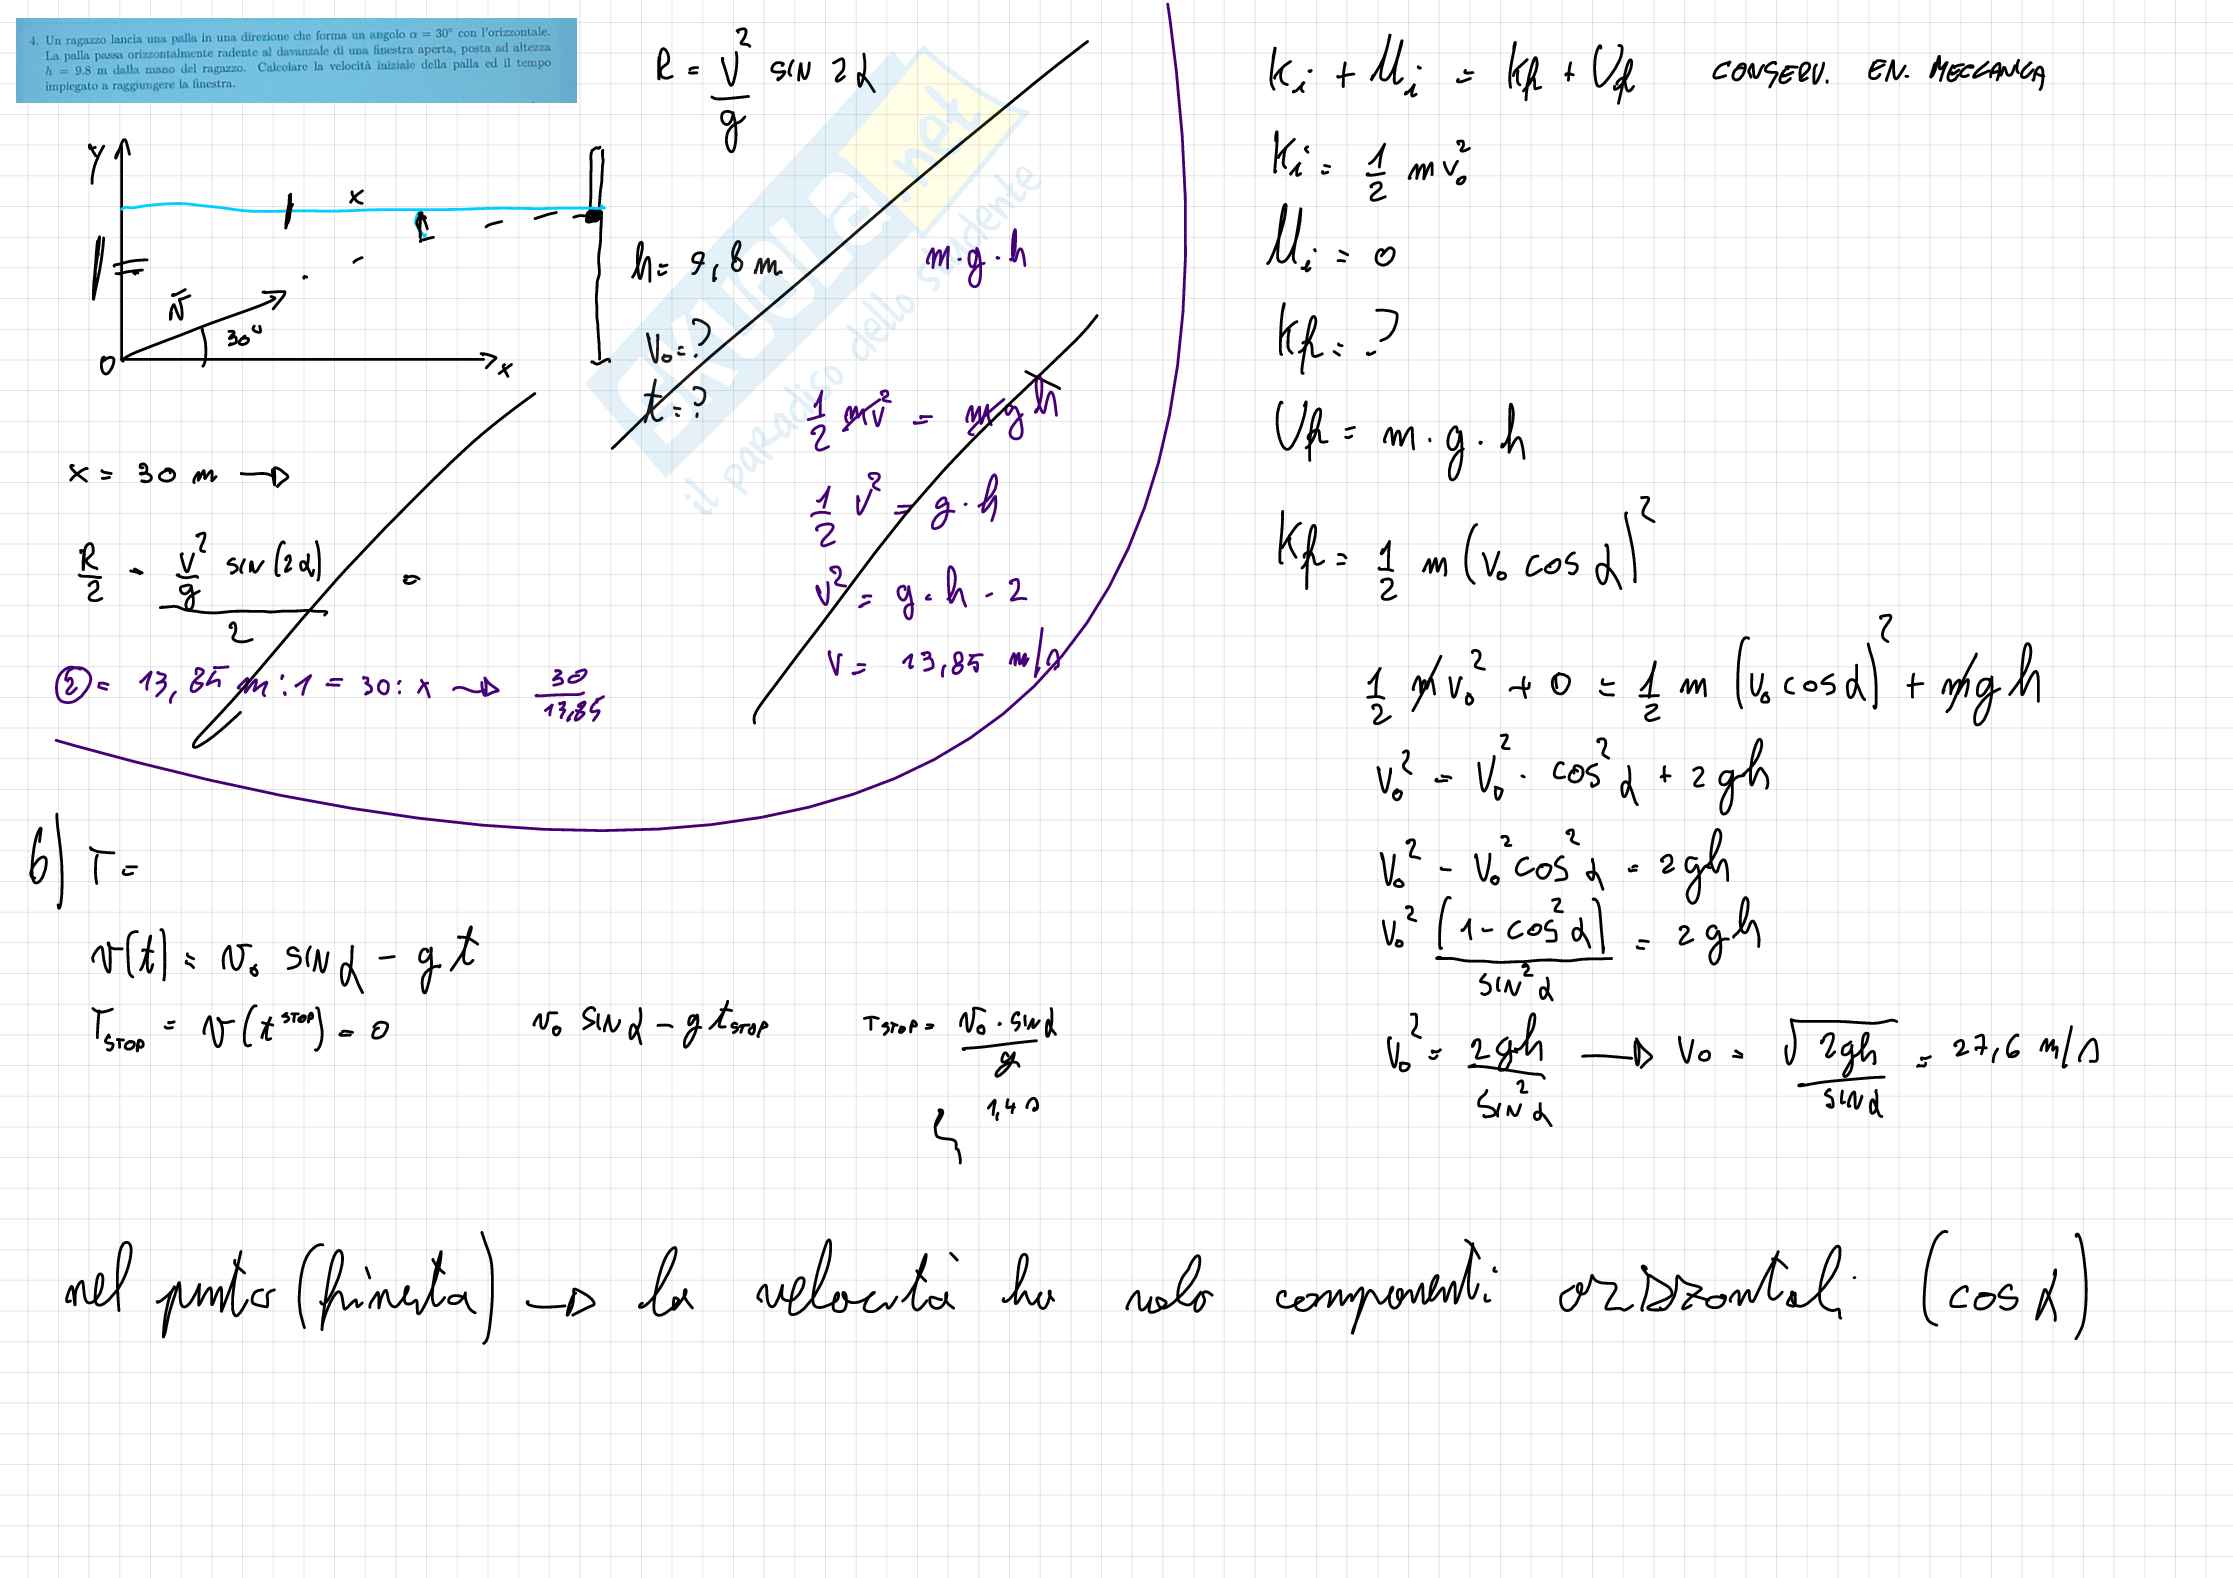 4. Un ragazzo lancia una palla in una direzione che forma un angolo α = 30° con l'orizzontale.
La palla passa orizzontalmente radente al davanzale di una finestra aperta, posta ad altezza
h = 9.8 m dalla mano del ragazzo. Calcolare la velocità iniziale della palla ed il tempo
impiegato a raggiungere la finestra.
R = v²/g sin 2α
y
x
v
30°
O
x
h = 9,8 m
v₀ = ?
t = ?
m·g·h
1/2 mv² = mgh
1/2 v² = g·h
v² = g·h·2
v = 13,85 m/s
x = 30 m →
R/2 - v²/g sin(2α) / 2
② = 13,85 m : 1 = 30 : x → 30/13,85
Ki + Ui = Kf + Uf CONSERV. EN. MECCANICA
Ki = 1/2 mv₀²
Ui = 0
Kf = ?
Uf = m·g·h
Kf = 1/2 m (v₀ cos α)²
1/2 mv₀² + 0 = 1/2 m (v₀ cos α)² + mgh
v₀² = v₀² · cos²α + 2gh
v₀² - v₀² cos²α = 2gh
v₀² (1 - cos²α) = 2gh
sin²α
v₀² = 2gh/sin²α → v₀ = √2gh/sin α = 27,6 m/s
b) T =
v(t) = v₀ sin α - gt
T STOP = v(t STOP) = 0 v₀ sin α - g t STOP T STOP = v₀ · sin α / g
1,4 s
nel punto (finestra) → la velocità ha solo componenti orizzontali (cos α)
EXULE.net
il paradiso dello studente